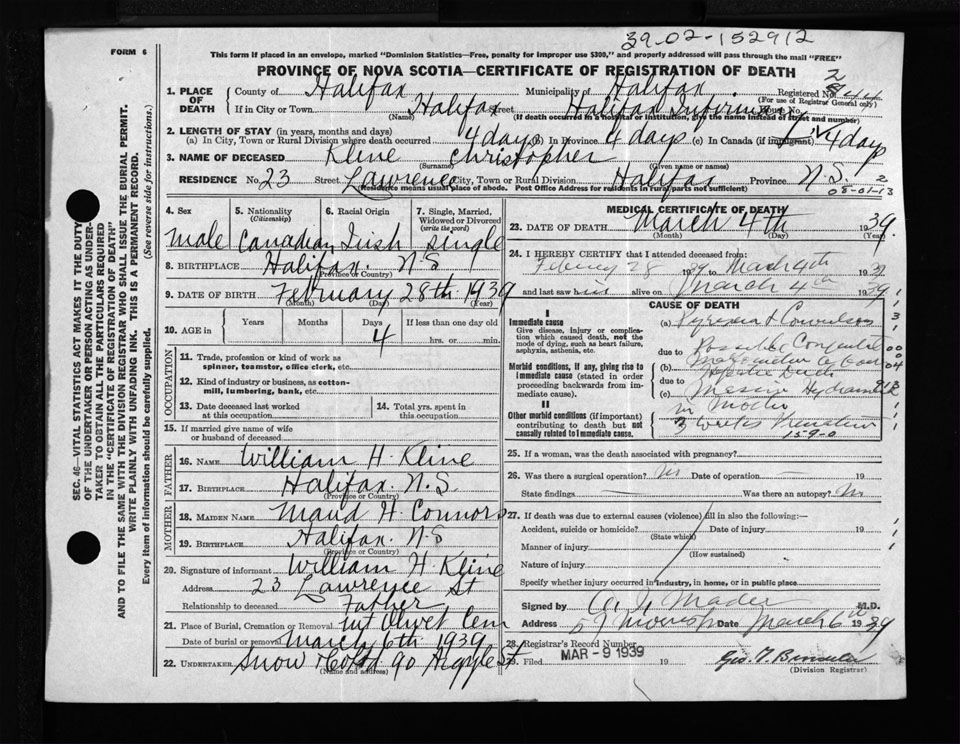 39-02-152912
FORM 6
This form if placed in an envelope, marked "Dominion Statistics—Free, penalty for improper use $300," and properly addressed will pass through the mail "FREE"
PROVINCE OF NOVA SCOTIA—CERTIFICATE OF REGISTRATION OF DEATH
1. PLACE OF DEATH
County of Halifax Municipality of Halifax Registered No.
(For use of Registrar General only)
If in City or Town Halifax Street Halifax Infirmary House No.
(Name) (If death occurred in a hospital or institution, give the name instead of street and number)
2. LENGTH OF STAY (in years, months and days)
(a) In City, Town or Rural Division where death occurred 4 days (b) In Province 4 days (c) In Canada (if immigrant) 4 days
3. NAME OF DECEASED Kline Christopher
(Surname) (Given name or names)
RESIDENCE No. 23 Street Lawrence City, Town or Rural Division Halifax Province N.S. 2
(Residence means usual place of abode. Post Office Address for residents in rural parts not sufficient)
08-01-13
4. Sex 5. Nationality (Citizenship) 6. Racial Origin 7. Single, Married, Widowed or Divorced (write the word)
Male Canadian Irish single
8. BIRTHPLACE Halifax. N.S
(Province or Country)
9. DATE OF BIRTH February 28th 1939
(Month) (Day) (Year)
10. AGE in Years Months Days If less than one day old
4 hrs. or min.
OCCUPATION
11. Trade, profession or kind of work as spinner, teamster, office clerk, etc.
12. Kind of industry or business, as cotton-mill, lumbering, bank, etc.
13. Date deceased last worked at this occupation
14. Total yrs. spent in this occupation
15. If married give name of wife or husband of deceased
FATHER
16. Name William H. Kline
17. Birthplace Halifax. N.S
(Province or Country)
MOTHER
18. Maiden Name Maud H. Connors
19. Birthplace Halifax. N.S
(Province or Country)
20. Signature of informant William H Kline
Address 23 Lawrence St
Relationship to deceased Father
21. Place of Burial, Cremation or Removal Mt Olivet Cem
Date of burial or removal March 6th 1939
22. UNDERTAKER Snow & Co Ltd 90 Argyle St
(Name and address)
MEDICAL CERTIFICATE OF DEATH
23. DATE OF DEATH March 4th 1939
(Month) (Day) (Year)
24. I HEREBY CERTIFY that I attended deceased from:
February 28 1939 to March 4th 1939
and last saw him alive on March 4th 1939
CAUSE OF DEATH
I
Immediate cause
Give disease, injury or complication which caused death, not the mode of dying, such as heart failure, asphyxia, asthenia, etc.
(a) Pyrexia & Convulsion
due to
Possible Congenital
(b)
Morbid conditions, if any, giving rise to immediate cause (stated in order proceeding backwards from immediate cause).
due to
(c)
II
Other morbid conditions (if important) contributing to death but not causally related to immediate cause.
in Mother
3 weeks
159-0
25. If a woman, was the death associated with pregnancy?
26. Was there a surgical operation? No Date of operation 19
State findings Was there an autopsy? No
27. If death was due to external causes (violence) fill in also the following:—
Accident, suicide or homicide? Date of injury 19
(State which)
Manner of injury
(How sustained)
Nature of injury
Specify whether injury occurred in industry, in home, or in public place
Signed by Mader M.D.
Address 57 Morris St Date March 6th 1939
28. Registrar's Record Number
29. Filed MAR - 9 1939 19
(Division Registrar)
SEC. 46—VITAL STATISTICS ACT MAKES IT THE DUTY
OF THE UNDERTAKER OR PERSON ACTING AS UNDER-
TAKER TO OBTAIN ALL THE PARTICULARS REQUIRED
IN THE "CERTIFICATE OF REGISTRATION OF DEATH"
AND TO FILE THE SAME WITH THE DIVISION REGISTRAR WHO SHALL ISSUE THE BURIAL PERMIT.
WRITE PLAINLY WITH UNFADING INK. THIS IS A PERMANENT RECORD.
Every item of information should be carefully supplied. (See reverse side for instructions.)